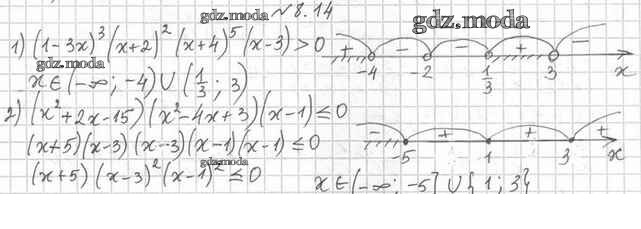 gdz.moda №8.14 gdz.moda
1) (1-3x)³(x+2)²(x+4)⁵(x-3)>0
+ - - + -
-4 -2 1/3 3 x
gdz.moda
x∈(-∞; -4)∪(1/3; 3)
2) (x²+2x-15)(x²-4x+3)(x-1)≤0
(x+5)(x-3)(x-3)(x-1)(x-1)≤0
- + + +
-5 1 3 x
gdz.moda
(x+5)(x-3)²(x-1)²≤0
x∈(-∞; -5]∪{1; 3}